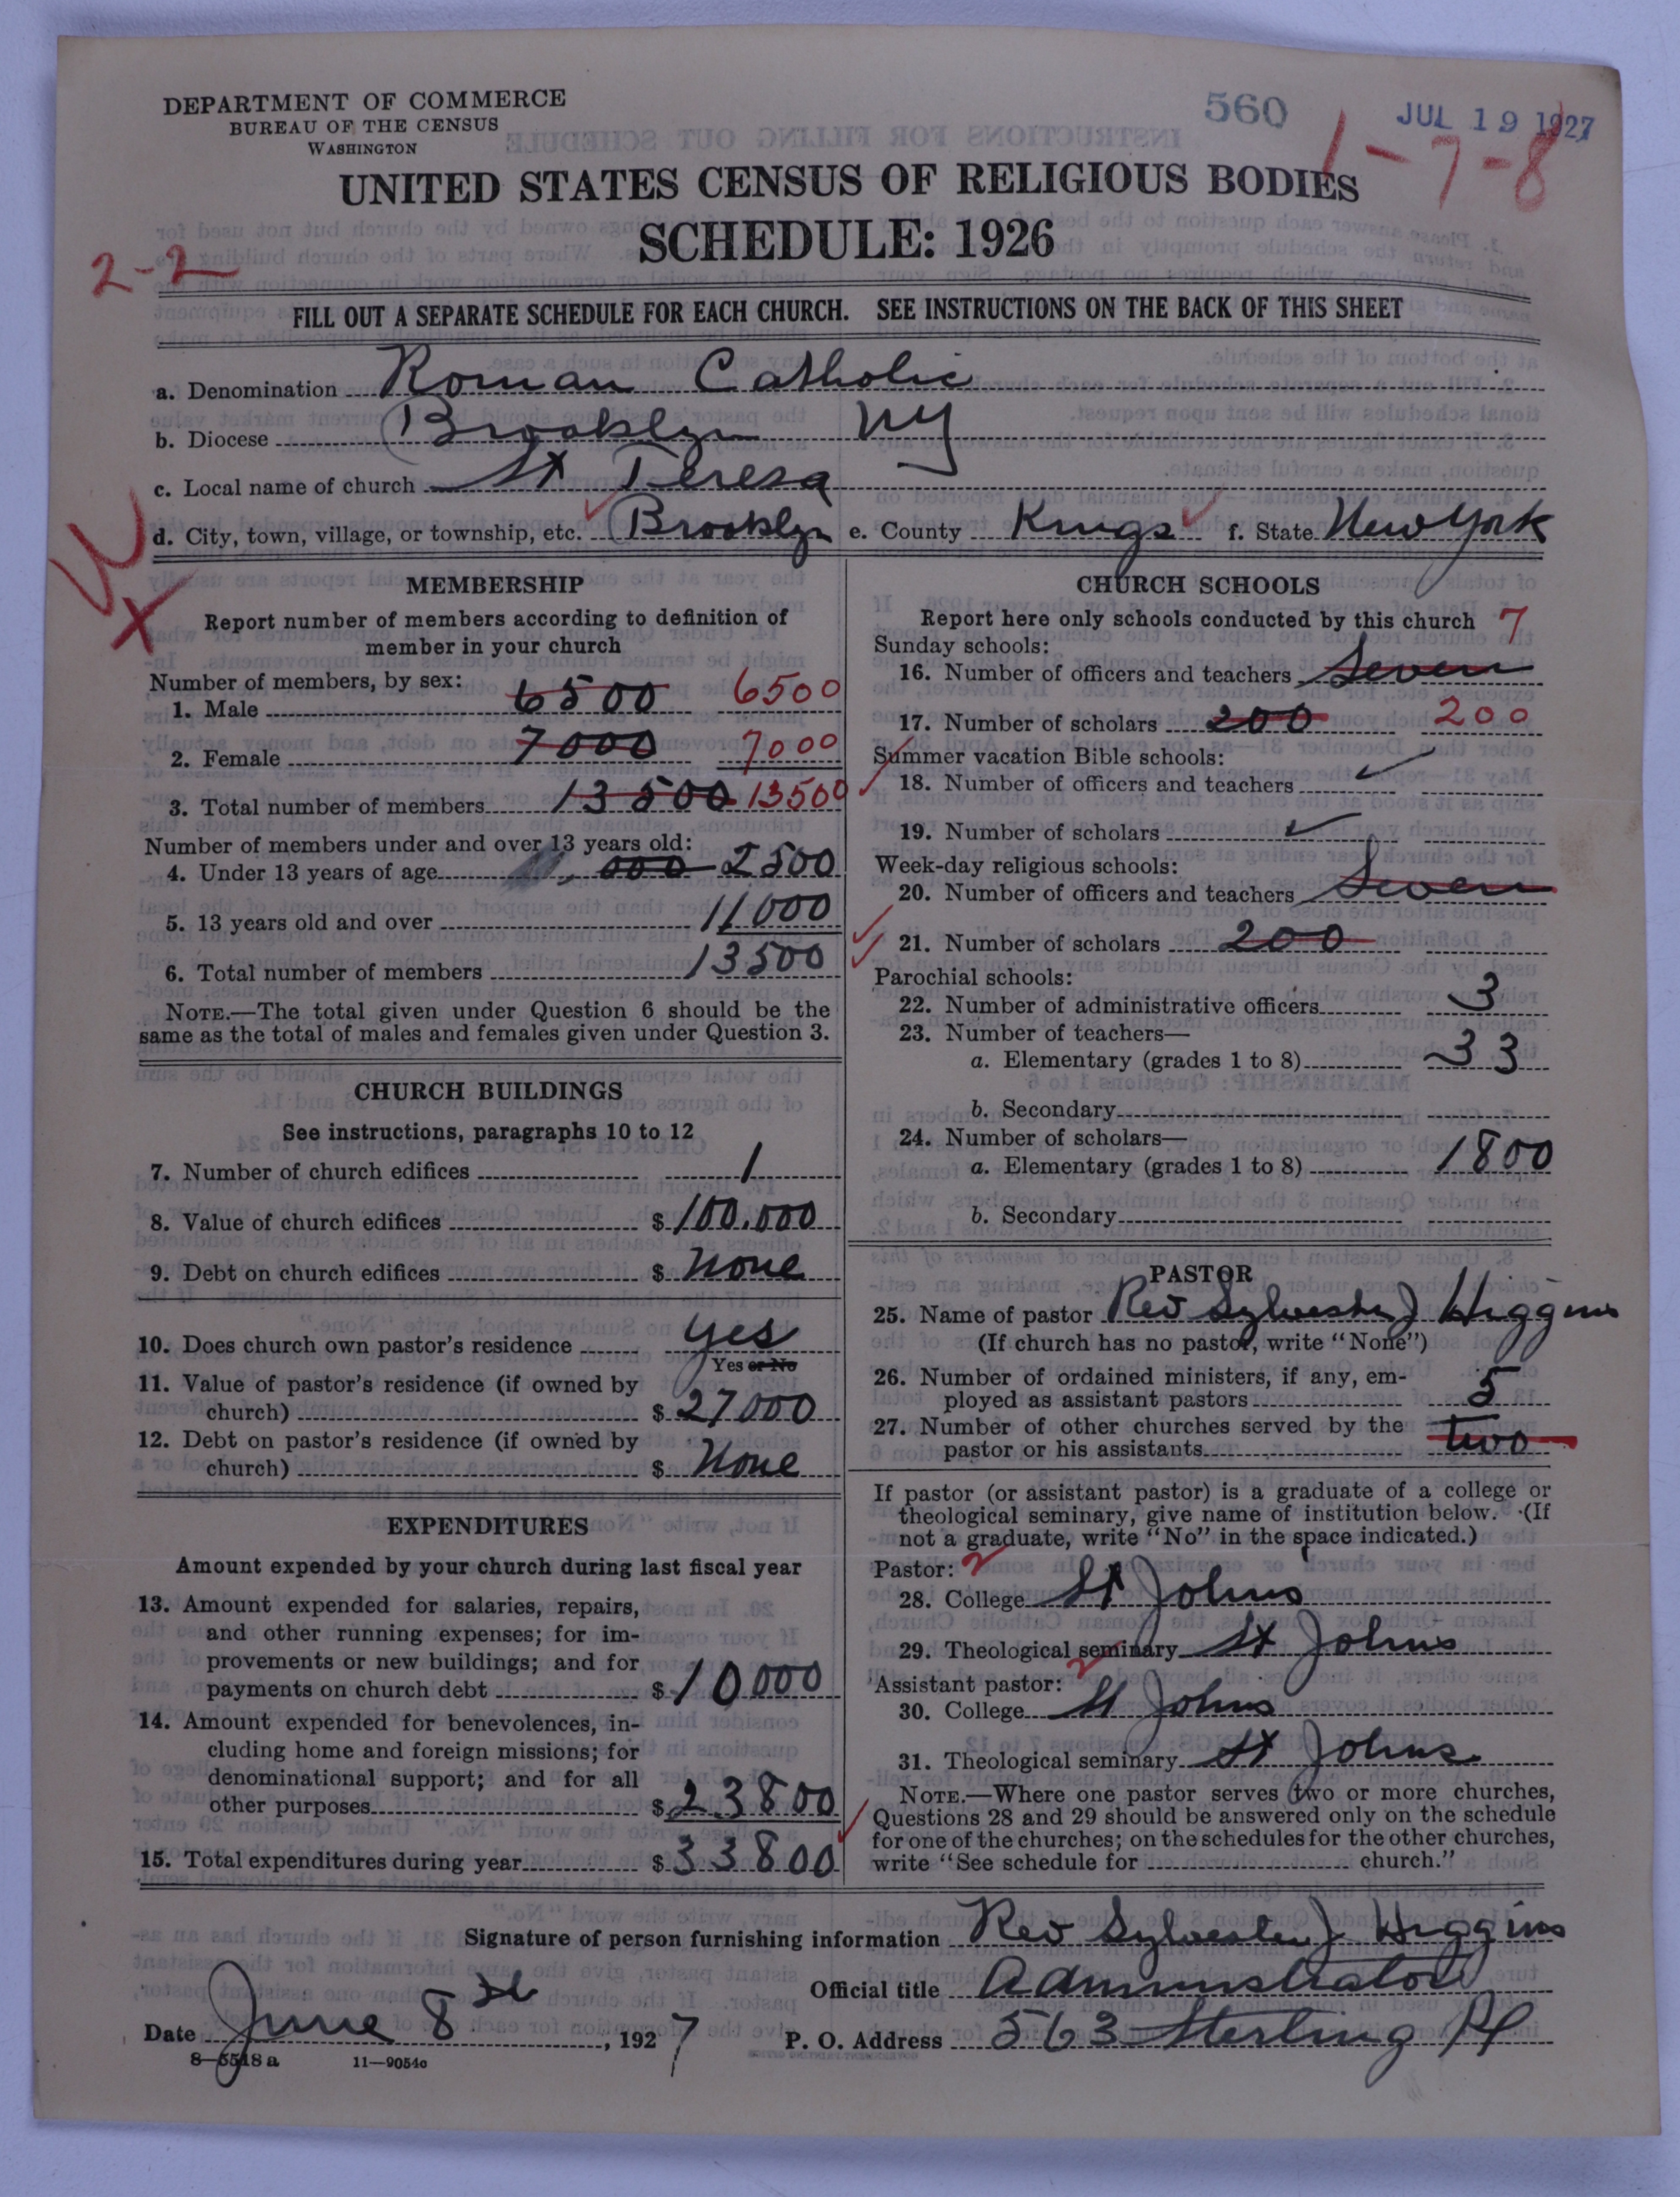 DEPARTMENT OF COMMERCE
BUREAU OF THE CENSUS
WASHINGTON
560
JUL 19 1927
1-7-8
UNITED STATES CENSUS OF RELIGIOUS BODIES
SCHEDULE: 1926
2-2
FILL OUT A SEPARATE SCHEDULE FOR EACH CHURCH. SEE INSTRUCTIONS ON THE BACK OF THIS SHEET
a. Denomination Roman Catholic
b. Diocese Brooklyn NY
c. Local name of church St Teresa
d. City, town, village, or township, etc. Brooklyn e. County Kings f. State New York
MEMBERSHIP
Report number of members according to definition of
member in your church
Number of members, by sex:
1. Male 6500 6500
2. Female 7000 7000
3. Total number of members 13500 13500
Number of members under and over 13 years old:
4. Under 13 years of age ,000 2500
5. 13 years old and over 11000
6. Total number of members 13500
NOTE.—The total given under Question 6 should be the
same as the total of males and females given under Question 3.
CHURCH BUILDINGS
See instructions, paragraphs 10 to 12
7. Number of church edifices 1
8. Value of church edifices $ 100.000
9. Debt on church edifices $ None
10. Does church own pastor's residence Yes
Yes or No
11. Value of pastor's residence (if owned by
church) $ 27000
12. Debt on pastor's residence (if owned by
church) $ None
EXPENDITURES
Amount expended by your church during last fiscal year
13. Amount expended for salaries, repairs,
and other running expenses; for im-
provements or new buildings; and for
payments on church debt $ 10000
14. Amount expended for benevolences, in-
cluding home and foreign missions; for
denominational support; and for all
other purposes $ 23800
15. Total expenditures during year $ 33800
CHURCH SCHOOLS
Report here only schools conducted by this church
Sunday schools:
16. Number of officers and teachers Seven 7
17. Number of scholars 200 200
Summer vacation Bible schools:
18. Number of officers and teachers ✓
19. Number of scholars ✓
Week-day religious schools:
20. Number of officers and teachers Seven
21. Number of scholars 200
Parochial schools:
22. Number of administrative officers 3
23. Number of teachers—
a. Elementary (grades 1 to 8) 33
b. Secondary
24. Number of scholars—
a. Elementary (grades 1 to 8) 1800
b. Secondary
PASTOR
25. Name of pastor Rev Sylvester J Higgins
(If church has no pastor, write "None")
26. Number of ordained ministers, if any, em-
ployed as assistant pastors 5
27. Number of other churches served by the
pastor or his assistants two
If pastor (or assistant pastor) is a graduate of a college or
theological seminary, give name of institution below. (If
not a graduate, write "No" in the space indicated.)
Pastor: 2
28. College St Johns
29. Theological seminary St Johns
Assistant pastor: 2
30. College St Johns
31. Theological seminary St Johns
NOTE.—Where one pastor serves two or more churches,
Questions 28 and 29 should be answered only on the schedule
for one of the churches; on the schedules for the other churches,
write "See schedule for church."
Signature of person furnishing information Rev Sylvester J Higgins
Official title Administrator
Date June 8th, 1927 P. O. Address 563 Sterling Pl
8-5518a 11-9054c